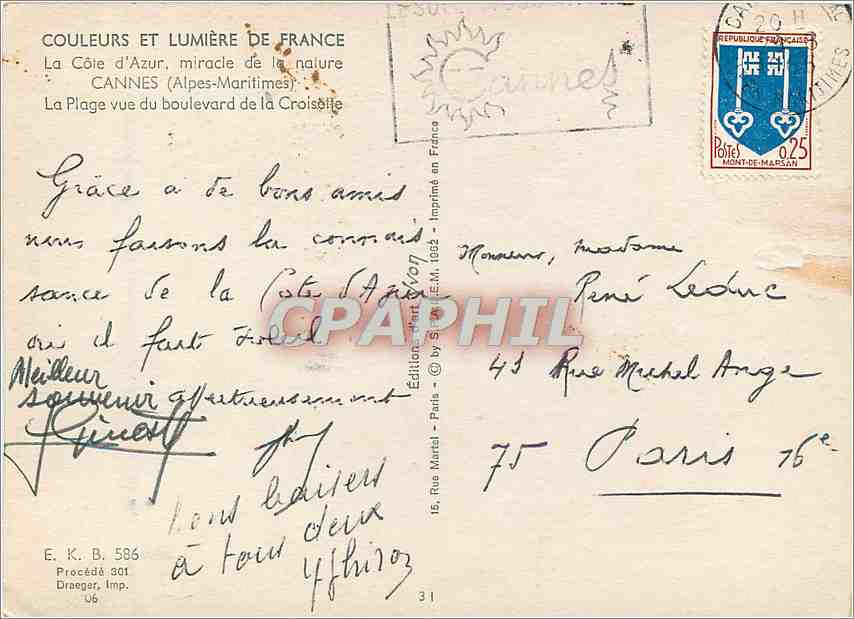 COULEURS ET LUMIÈRE DE FRANCE
La Côte d'Azur, miracle de la nature
CANNES (Alpes-Maritimes)
La Plage vue du boulevard de la Croisette
Cannes
20 H
MARITIMES
REPUBLIQUE FRANÇAISE
POSTES 0,25
MONT-DE-MARSAN
Grâce a de bons amis
nous faisons la connais
sance de la Côte d'Azur
où il fait soleil
affectueusement
Meilleur
souvenir
bons baisers
à tous deux
Monsieur, madame
René Leduc
45 Rue Michel Ange
75 Paris 16e
Editions d'art Yvon
15, Rue Martel - Paris - © by S.P.A.D.E.M. 1962 - Imprimé en France
CPAPHIL
E. K. B. 586
Procédé 301
Draeger, Imp.
06
31